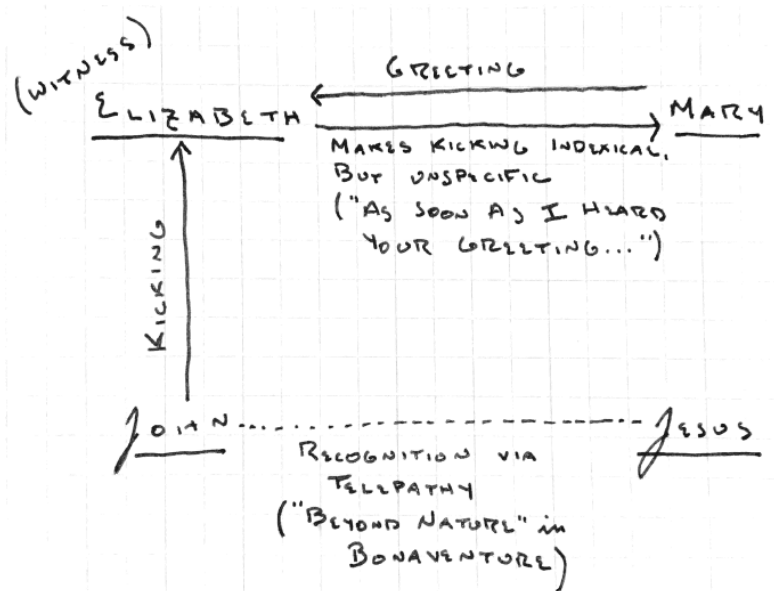 (WITNESS)
GREETING
ELIZABETH
MARY
MAKES KICKING INDEXICAL,
BUT UNSPECIFIC
("AS SOON AS I HEARD
YOUR GREETING...")
KICKING
JOHN
JESUS
RECOGNITION VIA
TELEPATHY
("BEYOND NATURE" in
BONAVENTURE)